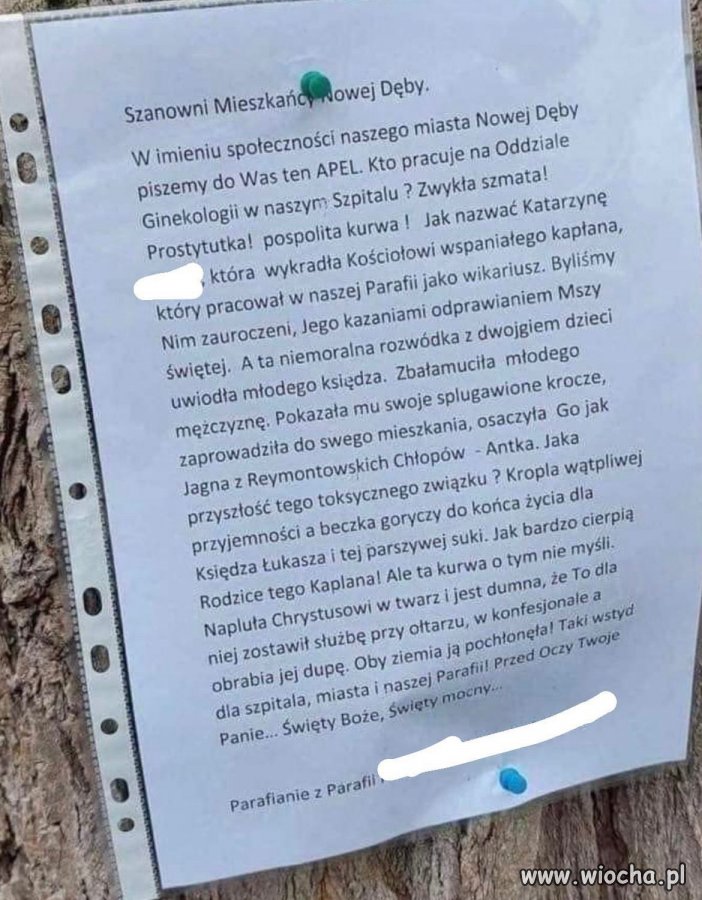 Szanowni Mieszkańcy Nowej Dęby.
W imieniu społeczności naszego miasta Nowej Dęby
piszemy do Was ten APEL. Kto pracuje na Oddziale
Ginekologii w naszym Szpitalu ? Zwykła szmata!
Prostytutka! pospolita kurwa ! Jak nazwać Katarzynę
, która wykradła Kościołowi wspaniałego kapłana,
który pracował w naszej Parafii jako wikariusz. Byliśmy
Nim zauroczeni, Jego kazaniami odprawianiem Mszy
świętej. A ta niemoralna rozwódka z dwojgiem dzieci
uwiodła młodego księdza. Zbałamuciła młodego
mężczyznę. Pokazała mu swoje splugawione krocze,
zaprowadziła do swego mieszkania, osaczyła Go jak
Jagna z Reymontowskich Chłopów - Antka. Jaka
przyszłość tego toksycznego związku ? Kropla wątpliwej
przyjemności a beczka goryczy do końca życia dla
Księdza Łukasza i tej parszywej suki. Jak bardzo cierpią
Rodzice tego Kapłana! Ale ta kurwa o tym nie myśli.
Napluła Chrystusowi w twarz i jest dumna, że To dla
niej zostawił służbę przy ołtarzu, w konfesjonale a
obrabia jej dupę. Oby ziemia ją pochłonęła! Taki wstyd
dla szpitala, miasta i naszej Parafii! Przed Oczy Twoje
Panie... Święty Boże, Święty mocny...
Parafianie z Parafii
www.wiocha.pl